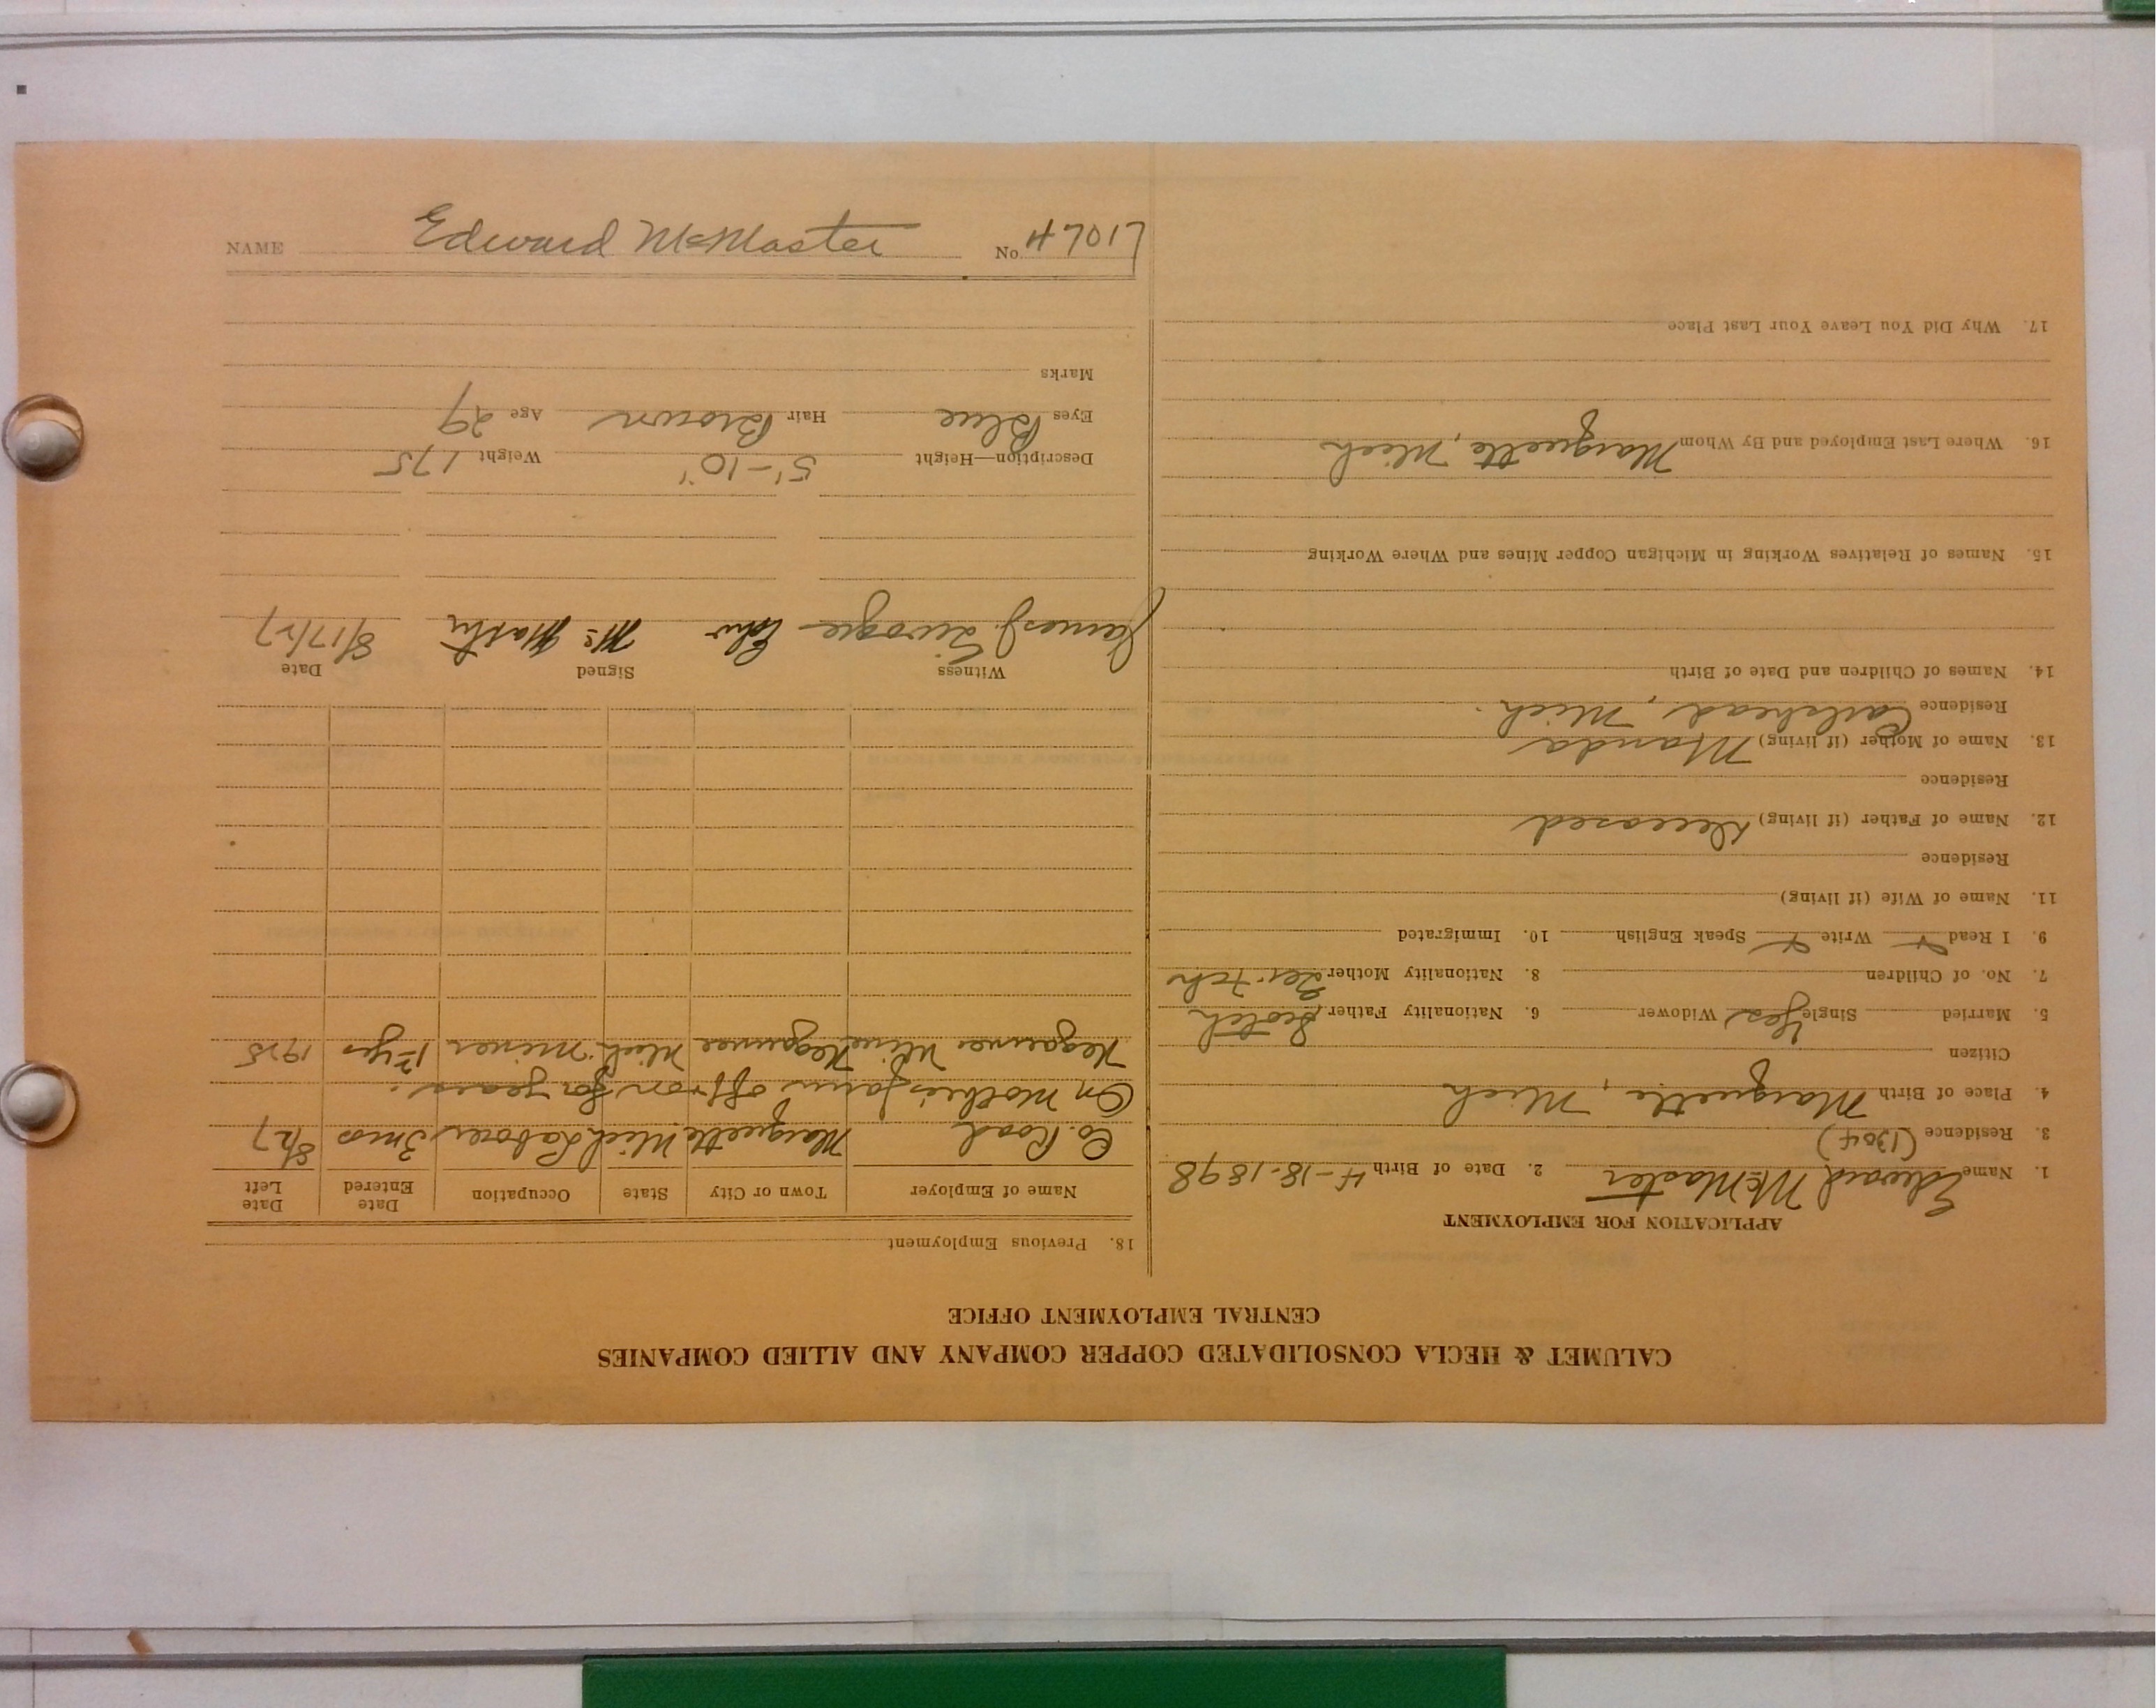 NAME Edward McMaster No. 47017
CALUMET & HECLA CONSOLIDATED COPPER COMPANY AND ALLIED COMPANIES
CENTRAL EMPLOYMENT OFFICE
APPLICATION FOR EMPLOYMENT
1. Name Edward McMaster 2. Date of Birth 4-18-1898
3. Residence (1304)
4. Place of Birth Marquette, Mich
Citizen
5. Married Single Yes Widower 6. Nationality Father Scotch
7. No. of Children 8. Nationality Mother
9. I Read Write Speak English 10. Immigrated
11. Name of Wife (if living)
Residence
12. Name of Father (if living) Deceased
Residence
13. Name of Mother (if living) Manda
Residence Carlshead, Mich.
14. Names of Children and Date of Birth
15. Names of Relatives Working in Michigan Copper Mines and Where Working
16. Where Last Employed and By Whom Marquette, Mich
17. Why Did You Leave Your Last Place
18. Previous Employment
Name of Employer Town or City State Occupation Date Entered Date Left
Co. Road Marquette Mich Laborer 3 mos 8/27
On Mothers farm off + on for years.
Negaunee Mine Negaunee Mich miner 1925
Witness Signed Date
James J. Edw Mc Master 8/17/27
Description—Height 5'-10" Weight 175
Eyes Blue Hair Brown Age 29
Marks